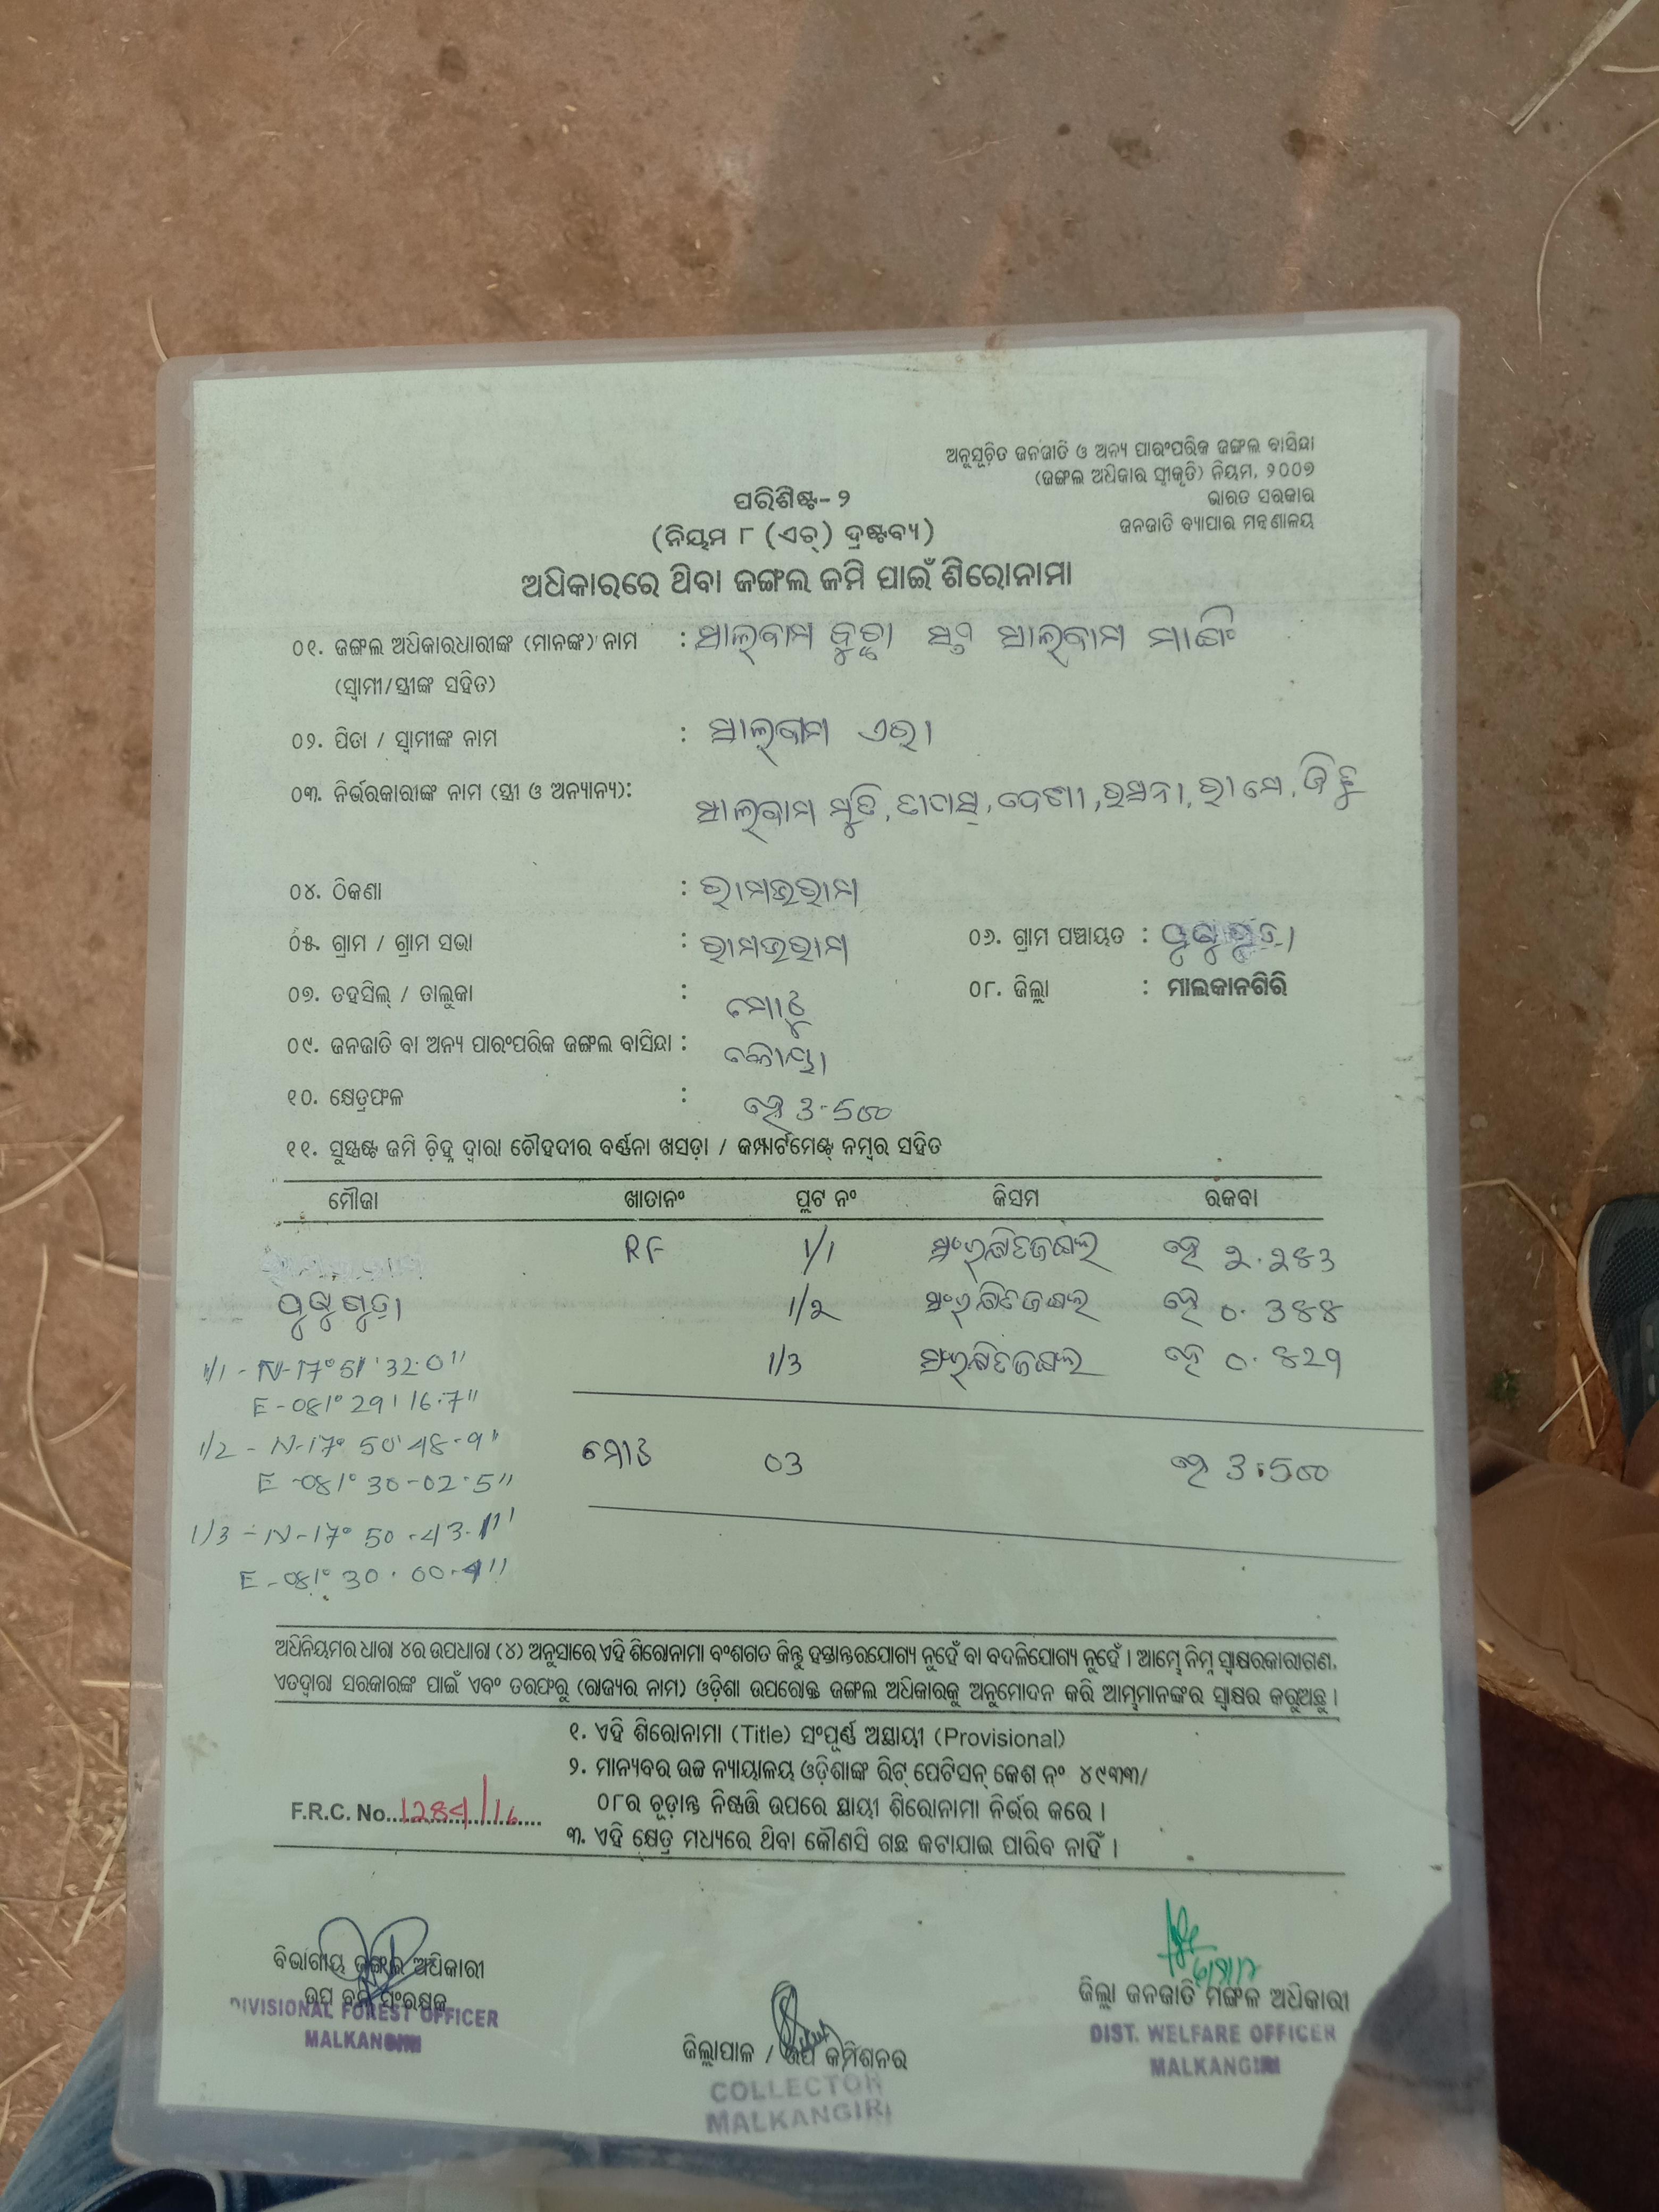 ଅନୁସୂଚିତ ଜନଜାତି ଓ ଅନ୍ୟ ପାରଂପରିକ ଜଙ୍ଗଲ ବାସିନ୍ଦା
(ଜଙ୍ଗଲ ଅଧିକାର ସ୍ୱୀକୃତି) ନିୟମ, ୨୦୦୭
ଭାରତ ସରକାର
ଜନଜାତି ବ୍ୟାପାର ମନ୍ତ୍ରଣାଳୟ
ପରିଶିଷ୍ଟ- ୨
(ନିୟମ ୮ (ଏଚ୍) ଦ୍ରଷ୍ଟବ୍ୟ)
ଅଧିକାରରେ ଥିବା ଜଙ୍ଗଲ ଜମି ପାଇଁ ଶିରୋନାମା
୦୧. ଜଙ୍ଗଲ ଅଧିକାରଧାରୀଙ୍କ (ମାନଙ୍କ) ନାମ :
(ସ୍ୱାମୀ/ସ୍ତ୍ରୀଙ୍କ ସହିତ)
୦୨. ପିତା / ସ୍ୱାମୀଙ୍କ ନାମ :
୦୩. ନିର୍ଭରକାରୀଙ୍କ ନାମ (ସ୍ତ୍ରୀ ଓ ଅନ୍ୟାନ୍ୟ):
୦୪. ଠିକଣା : ରାମଭରାମ
୦୫. ଗ୍ରାମ / ଗ୍ରାମ ସଭା : ରାମଭରାମ ୦୬. ଗ୍ରାମ ପଞ୍ଚାୟତ :
୦୭. ତହସିଲ୍ / ତାଲୁକା : ମୋଟୁ ୦୮. ଜିଲ୍ଲା : ମାଲକାନଗିରି
୦୯. ଜନଜାତି ବା ଅନ୍ୟ ପାରଂପରିକ ଜଙ୍ଗଲ ବାସିନ୍ଦା : କୋୟା
୧୦. କ୍ଷେତ୍ରଫଳ : ହେ 3.500
୧୧. ସୁସ୍ପଷ୍ଟ ଜମି ଚିହ୍ନ ଦ୍ୱାରା ଚୌହଦୀର ବର୍ଣ୍ଣନା ଖସଡ଼ା / କମ୍ପାର୍ଟମେଣ୍ଟ ନମ୍ବର ସହିତ
ମୌଜା ଖାତାନଂ ପ୍ଲଟ ନଂ କିସମ ରକବା
RF 1/1 ସଂରକ୍ଷିତଜଙ୍ଗଲ ହେ 2.283
1/2 ସଂରକ୍ଷିତଜଙ୍ଗଲ ହେ 0.388
1/3 ସଂରକ୍ଷିତଜଙ୍ଗଲ ହେ 0.829
1/1 - N-17° 51' 32.0"
E - 081° 29' 16.7"
1/2 - N-17° 50' 48.9"
E - 081° 30-02.5"
ମୋଟ 03 ହେ 3.500
1/3 - N-17° 50-43.1"
E - 081° 30.00.4"
ଅଧିନିୟମର ଧାରା ୪ର ଉପଧାରା (୪) ଅନୁସାରେ ଏହି ଶିରୋନାମା ବଂଶଗତ କିନ୍ତୁ ହସ୍ତାନ୍ତରଯୋଗ୍ୟ ନୁହେଁ ବା ବଦଳିଯୋଗ୍ୟ ନୁହେଁ । ଆମ୍ଭେ ନିମ୍ନ ସ୍ୱାକ୍ଷରକାରୀଗଣ,
ଏତଦ୍ୱାରା ସରକାରଙ୍କ ପାଇଁ ଏବଂ ତରଫରୁ (ରାଜ୍ୟର ନାମ) ଓଡ଼ିଶା ଉପରୋକ୍ତ ଜଙ୍ଗଲ ଅଧିକାରକୁ ଅନୁମୋଦନ କରି ଆମ୍ଭମାନଙ୍କର ସ୍ୱାକ୍ଷର କରୁଅଛୁ ।
୧. ଏହି ଶିରୋନାମା (Title) ସଂପୂର୍ଣ୍ଣ ଅସ୍ଥାୟୀ (Provisional)
୨. ମାନ୍ୟବର ଉଚ୍ଚ ନ୍ୟାୟାଳୟ ଓଡ଼ିଶାଙ୍କ ରିଟ୍ ପେଟିସନ୍ କେଶ ନଂ ୪୯୩୩/
୦୮ର ଚୂଡ଼ାନ୍ତ ନିଷ୍ପତ୍ତି ଉପରେ ସ୍ଥାୟୀ ଶିରୋନାମା ନିର୍ଭର କରେ ।
F.R.C. No. 1284/16
୩. ଏହି କ୍ଷେତ୍ର ମଧ୍ୟରେ ଥିବା କୌଣସି ଗଛ କଟାଯାଇ ପାରିବ ନାହିଁ ।
ବିଭାଗୀୟ ଜଙ୍ଗଲ ଅଧିକାରୀ
ଉପ ବନ ସଂରକ୍ଷକ
DIVISIONAL FOREST OFFICER
MALKANGIRI
ଜିଲ୍ଲାପାଳ / ଉପ କମିଶନର
COLLECTOR
MALKANGIRI
ଜିଲ୍ଲା ଜନଜାତି ମଙ୍ଗଳ ଅଧିକାରୀ
DIST. WELFARE OFFICER
MALKANGIRI